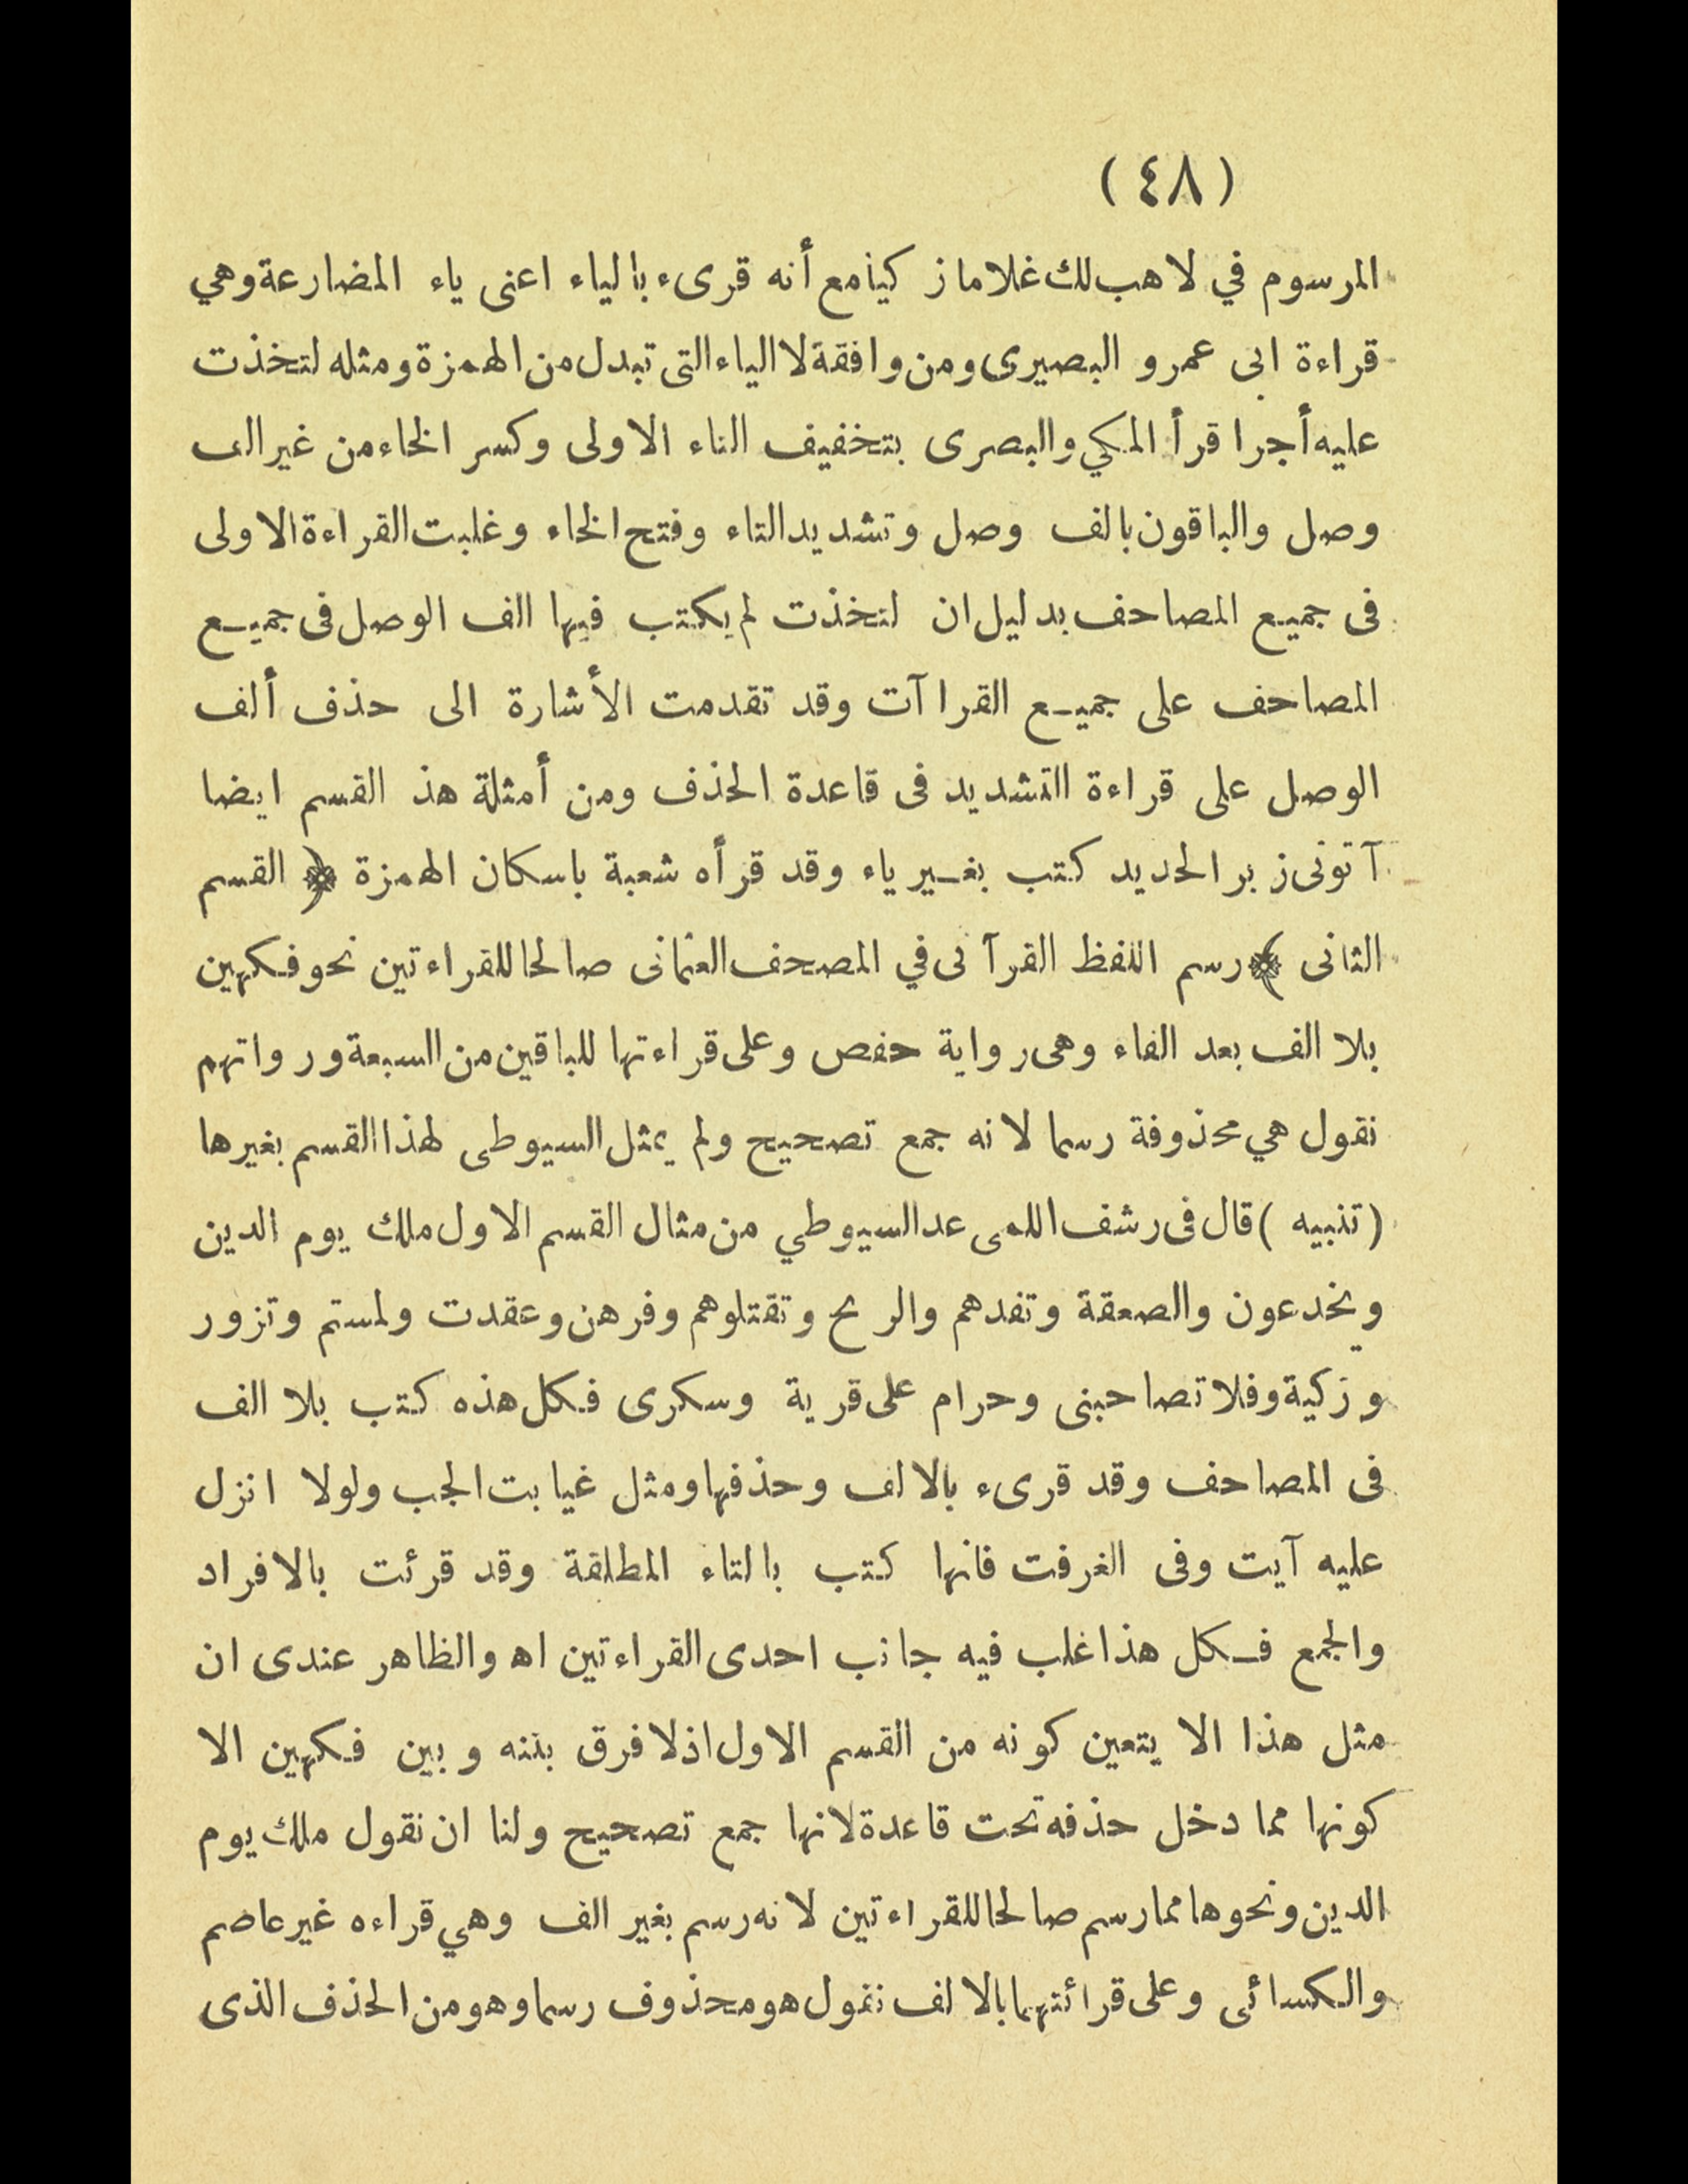 (٤٨)
المرسوم في لاهب لك غلاما زكيا مع أنه قرىء بالياء اعنى ياء المضارعة وهي
قراءة ابى عمرو البصيرى ومن وافقة لا الياء التى تبدل من الهمزة ومثله لتخذت
عليه أجرا قرأ المكي والبصرى بتخفيف التاء الاولى وكسر الخاء من غير الف
وصل والباقون بالف وصل وتشديد التاء وفتح الخاء وغلبت القراءة الاولى
فى جميع المصاحف بدليل ان لتخذت لم يكتب فيها الف الوصل فى جميع
المصاحف على جميع القراآت وقد تقدمت الأشارة الى حذف ألف
الوصل على قراءة التشديد فى قاعدة الحذف ومن أمثلة هذ القسم ايضا
آتونى زبر الحديد كتب بغير ياء وقد قرأه شعبة باسكان الهمزة ﴿ القسم
الثانى ﴾ رسم اللفظ القرآنى في المصحف العثمانى صالحا للقراءتين نحو فكهين
بلا الف بعد الفاء وهى رواية حفص وعلى قراءتها للباقين من السبعة ورواتهم
نقول هي محذوفة رسما لانه جمع تصحيح ولم يمثل السيوطى لهذا القسم بغيرها
(تنبيه) قال فى رشف اللمى عد السيوطي من مثال القسم الاول ملك يوم الدين
ويخدعون والصعقة وتفدهم والريح وتقتلوهم وفرهن وعقدت ولمستم وتزور
وزكية وفلا تصاحبنى وحرام على قرية وسكرى فكل هذه كتب بلا الف
فى المصاحف وقد قرىء بالالف وحذفها ومثل غيابت الجب ولولا انزل
عليه آيت وفى الغرفت فانها كتب بالتاء المطلقة وقد قرئت بالافراد
والجمع فكل هذا غلب فيه جانب احدى القراءتين اه والظاهر عندى ان
مثل هذا الا يتعين كونه من القسم الاول اذ لا فرق بننه وبين فكهين الا
كونها مما دخل حذفه تحت قاعدة لانها جمع تصحيح ولنا ان نقول ملك يوم
الدين ونحوها مما رسم صالحا للقراءتين لانه رسم بغير الف وهي قراءه غير عاصم
والكسائى وعلى قرائتهما بالالف نقول هو محذوف رسما وهو من الحذف الذى